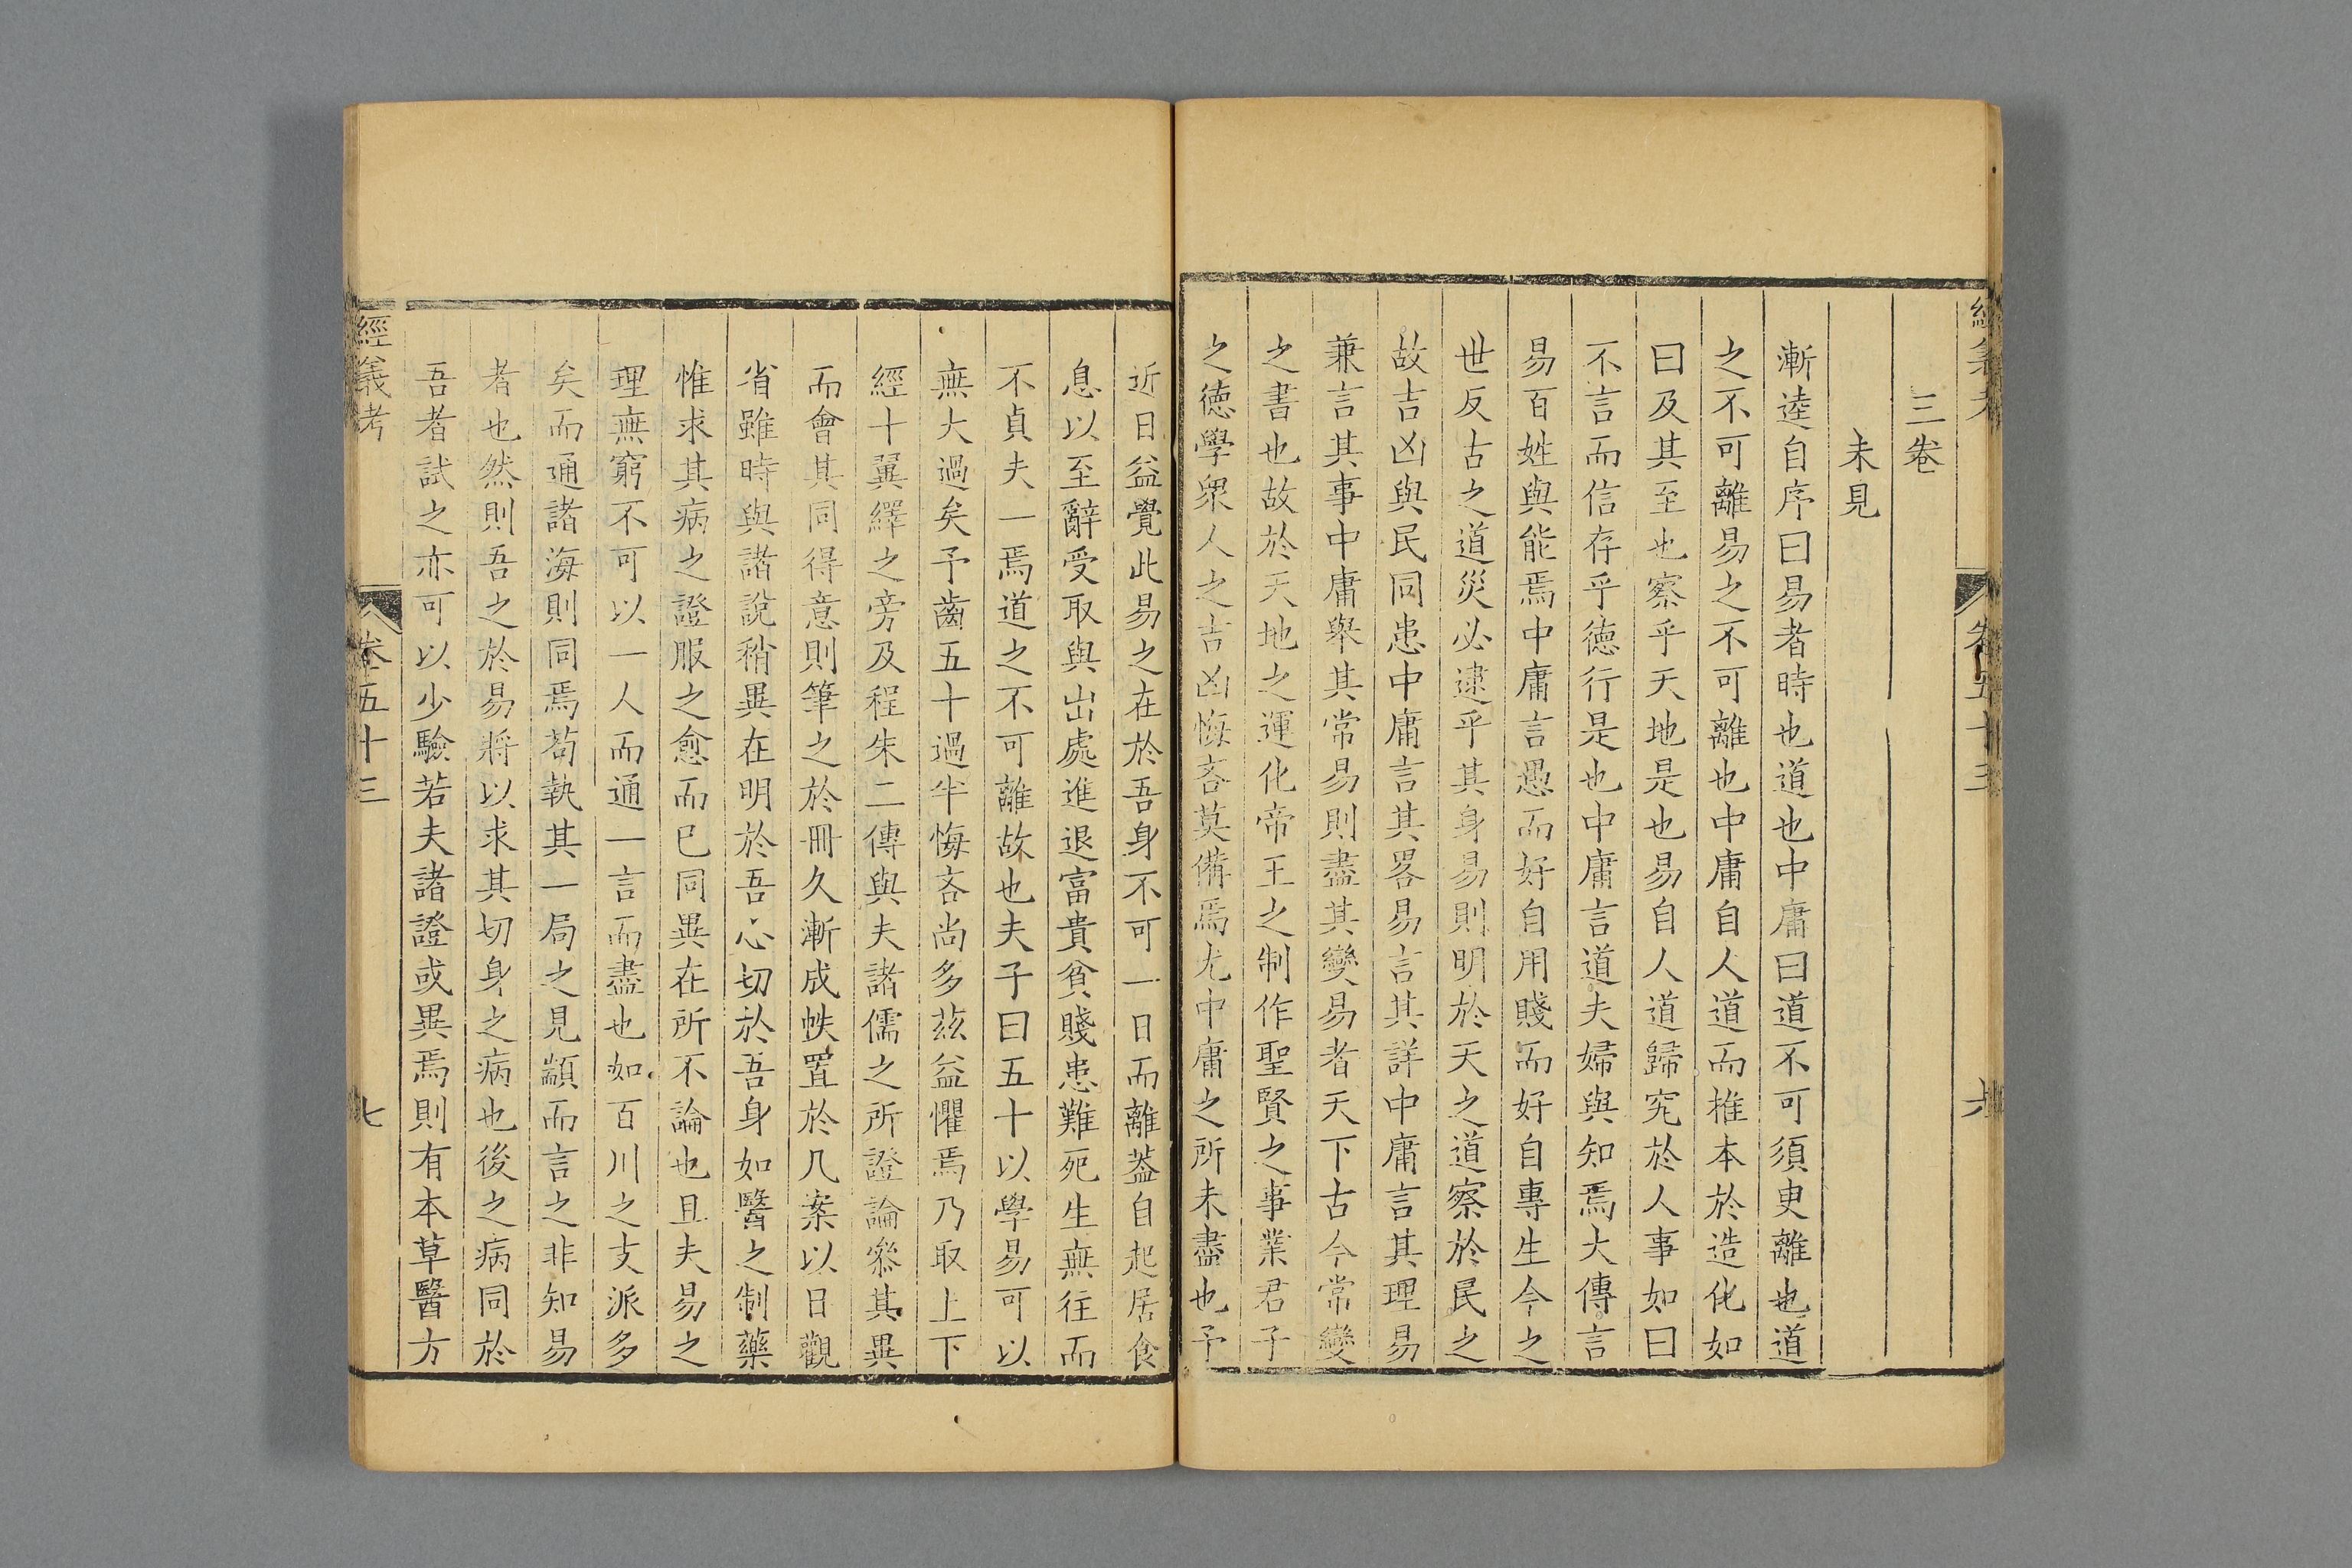 經義考 卷五十三 六
三卷
未見
漸逵自序曰易者時也道也中庸曰道不可須臾離也道
之不可離易之不可離也中庸自人道而推本於造化如
曰及其至也察乎天地是也易自人道歸究於人事如曰
不言而信存乎德行是也中庸言道夫婦與知焉大傳言
易百姓與能焉中庸言愚而好自用賤而好自專生今之
世反古之道災必逮乎其身易則明於天之道察於民之
故吉凶與民同患中庸言其畧易言其詳中庸言其理易
兼言其事中庸舉其常易則盡其變易者天下古今常變
之書也故於天地之運化帝王之制作聖賢之事業君子
之德學衆人之吉凶悔吝莫備焉尤中庸之所未盡也予
近日益覺此易之在於吾身不可一日而離葢自起居食
息以至辭受取與出處進退富貴貧賤患難死生無往而
不貞夫一焉道之不可離故也夫子曰五十以學易可以
無大過矣予齒五十過半悔吝尚多茲益懼焉乃取上下
經十翼繹之旁及程朱二傳與夫諸儒之所證論叅其異
而會其同得意則筆之於冊久漸成帙置於几案以日觀
省雖時與諸說稍異在明於吾心切於吾身如醫之制藥
惟求其病之證服之愈而已同異在所不論也且夫易之
理無窮不可以一人而通一言而盡也如百川之支派多
矣而通諸海則同焉苟執其一局之見顓而言之非知易
者也然則吾之於易將以求其切身之病也後之病同於
吾者試之亦可以少驗若夫諸證或異焉則有本草醫方
經義考 卷五十三 七